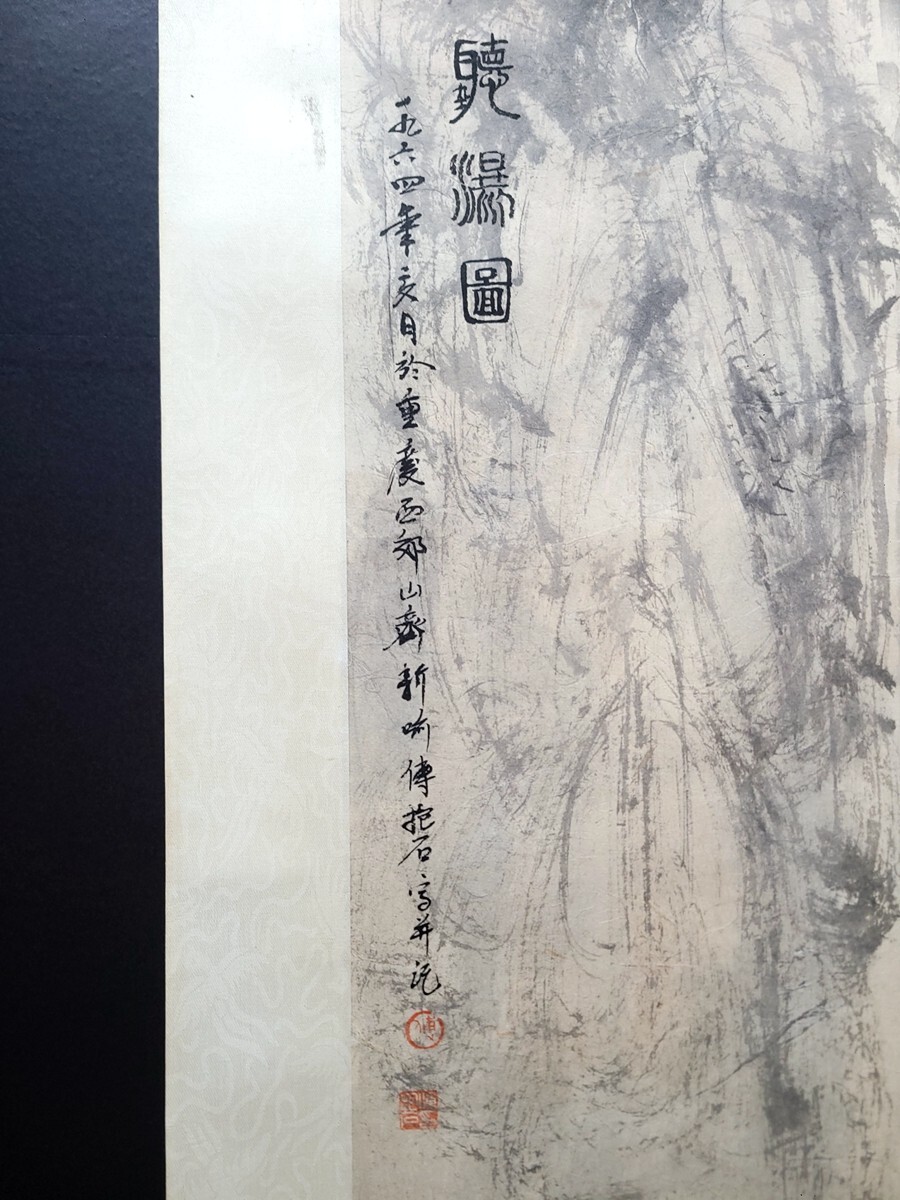 聽瀑圖
一九六四年亥月於重慶西郊山齋新喻傅抱石寫并記
傅